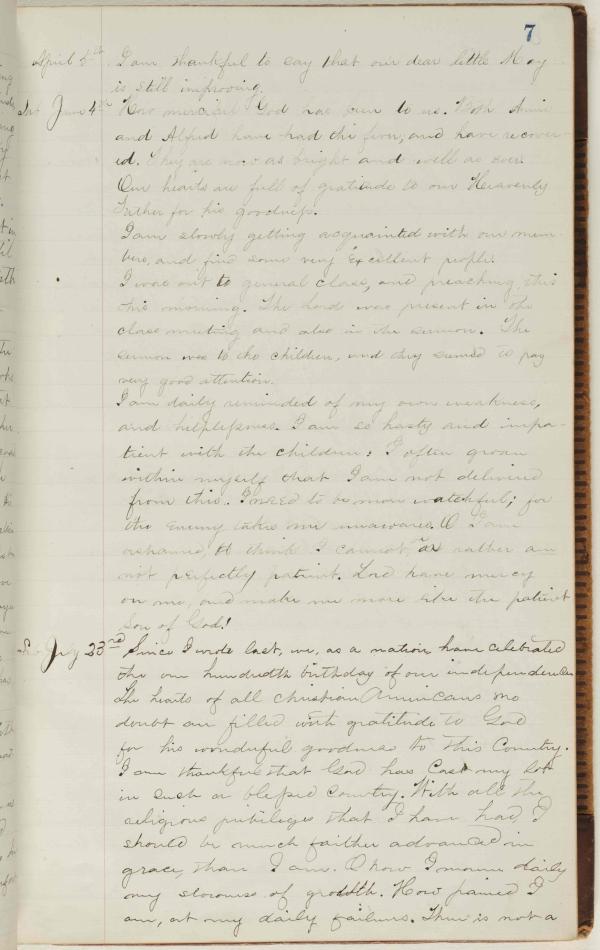 7
April 5th I am thankful to say that our dear little May
is still improving.
Sat June 4th How merciful God has been to us. Both Annie
and Alfred have had the fever, and have recover-
ed. They are now as bright and well as ever.
Our hearts are full of gratitude to our Heavenly
Father for his goodness.
I am slowly getting acquainted with our mem-
bers, and find some very excellent people.
I was out to general class, and preaching, this
this morning. The Lord was present in the
class meeting and also in the sermon. The
sermon was to the children, and they seemed to pay
very good attention.
I am daily reminded of my own weakness,
and helplessness. I am so hasty and impa-
tient with the children; I often groan
within myself that I am not delivered
from this. I need to be more watchful; for
the enemy takes me unawares. O I am
ashamed, to think I cannot, or rather am
not perfectly patient. Lord have mercy
on me, and make me more like the patient
Son of God!
July 23rd Since I wrote last, we, as a nation have celebrated
the one hundredth birthday of our independence.
The hearts of all christian Americans no
doubt are filled with gratitude to God
for his wonderful goodness to this Country.
I am thankful that God has cast my lot
in such a blessed country. With all the
religious privileges that I have had I
should be much farther advanced in
grace, than I am. O how I mourn daily
my slowness of growth. How pained I
am, at my daily failures. There is not a